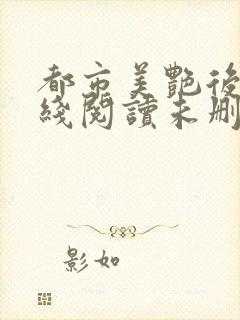 都市美艷後
綫閱讀未刪
影如